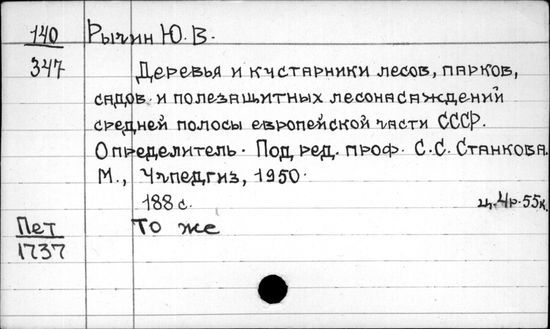 140 Рычин Ю. В.
347 Деревья и кустарники лесов, парков,
садов и полезащитных лесонасаждений
средней полосы европейской части СССР.
Определитель. Под ред. проф. С. С. Станкова.
М., Учпедгиз, 1950.
188 с. ц. 4р. 55к.
Пет То же
1737